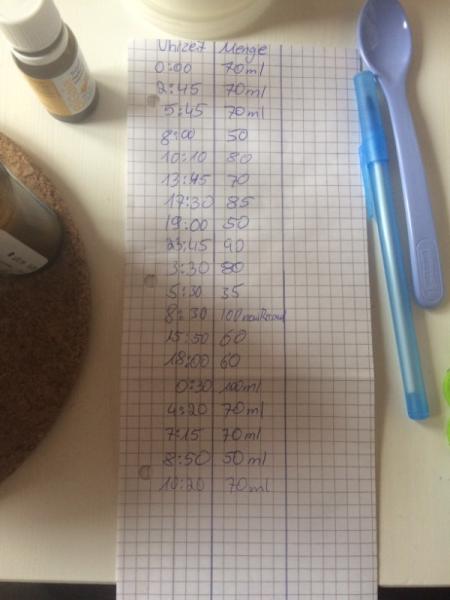 Uhrzeit Menge
0:00 70ml
2:45 70ml
5:45 70ml
8:00 50
10:10 80
13:45 70
17:30 85
19:00 50
23:45 90
3:30 80
5:30 35
8:30 100 new Record
15:50 60
18:00 60
0:30 100ml
4:20 70ml
7:15 70ml
8:50 50ml
10:20 70ml